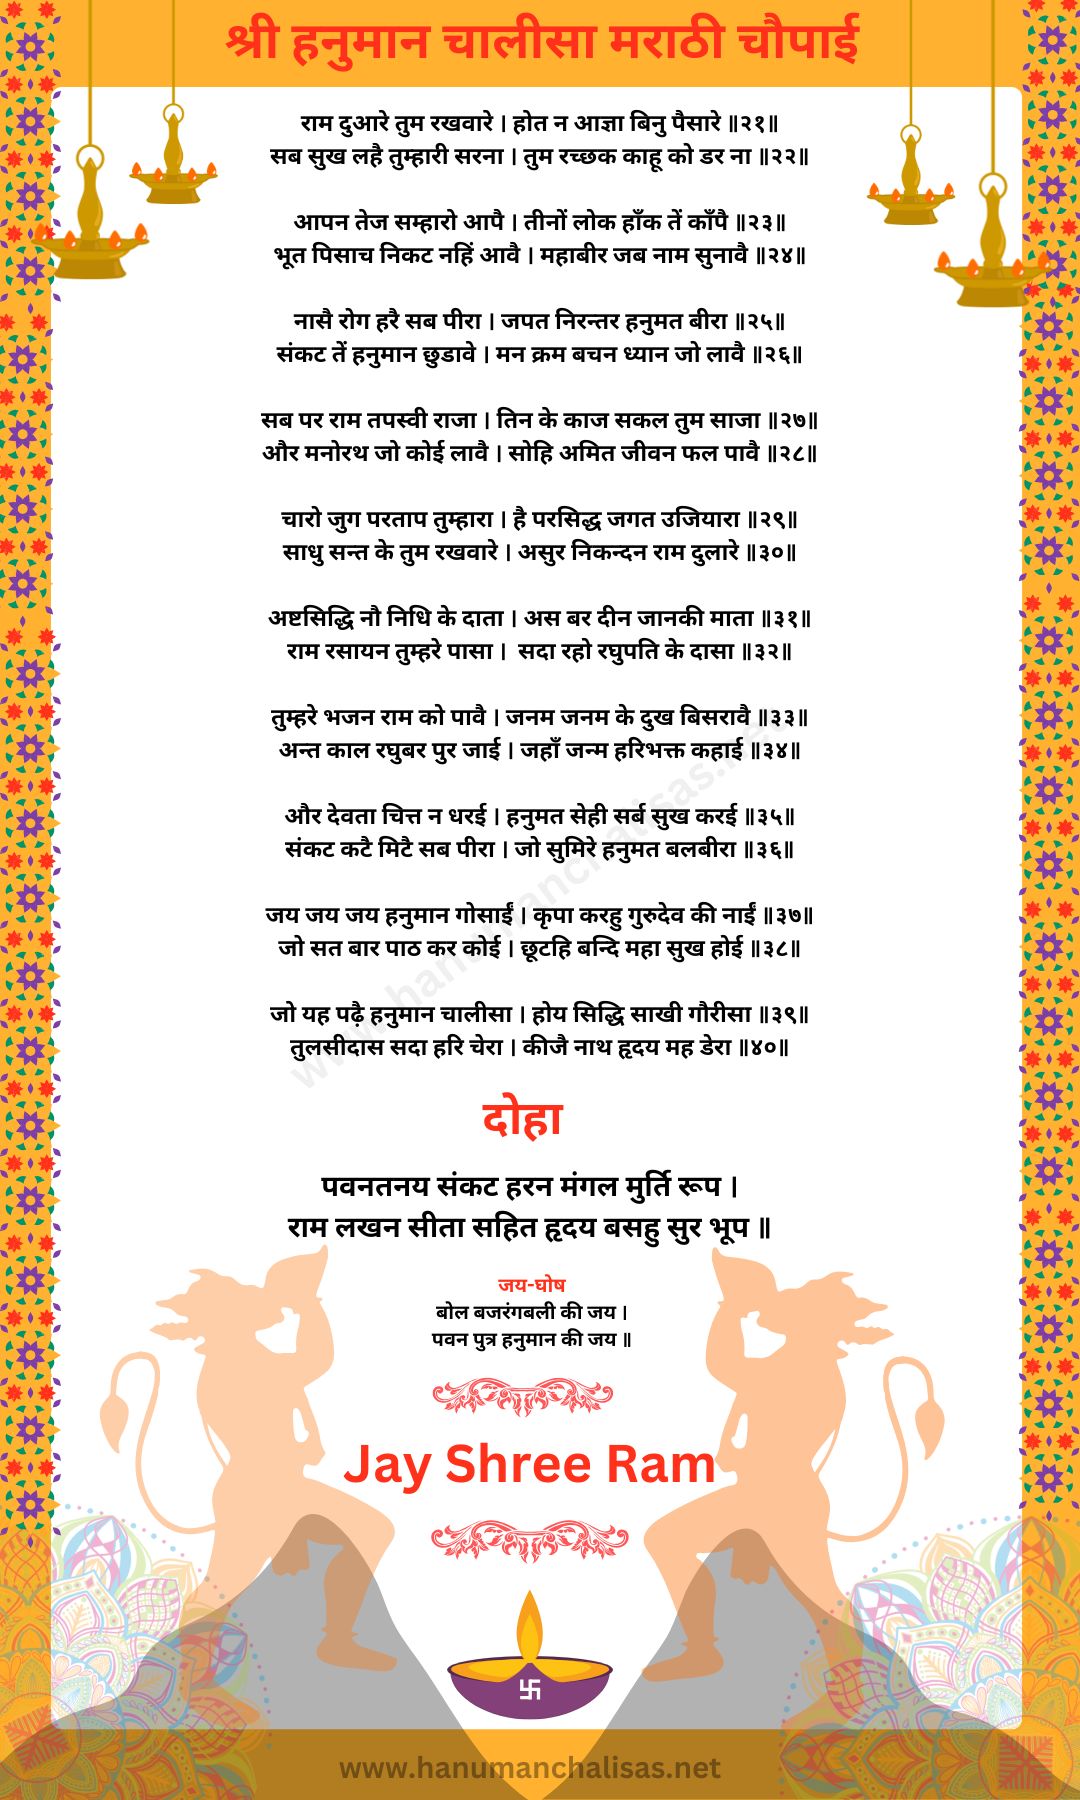 श्री हनुमान चालीसा मराठी चौपाई
राम दुआरे तुम रखवारे । होत न आज्ञा बिनु पैसारे ॥२१॥
सब सुख लहै तुम्हारी सरना । तुम रच्छक काहू को डर ना ॥२२॥
आपन तेज सम्हारो आपै । तीनों लोक हाँक तें काँपै ॥२३॥
भूत पिसाच निकट नहिं आवै । महाबीर जब नाम सुनावै ॥२४॥
नासै रोग हरै सब पीरा । जपत निरन्तर हनुमत बीरा ॥२५॥
संकट तें हनुमान छुडावे । मन क्रम बचन ध्यान जो लावै ॥२६॥
सब पर राम तपस्वी राजा । तिन के काज सकल तुम साजा ॥२७॥
और मनोरथ जो कोई लावै । सोहि अमित जीवन फल पावै ॥२८॥
चारो जुग परताप तुम्हारा । है परसिद्ध जगत उजियारा ॥२९॥
साधु सन्त के तुम रखवारे । असुर निकन्दन राम दुलारे ॥३०॥
अष्टसिद्धि नौ निधि के दाता । अस बर दीन जानकी माता ॥३१॥
राम रसायन तुम्हरे पासा । सदा रहो रघुपति के दासा ॥३२॥
तुम्हरे भजन राम को पावै । जनम जनम के दुख बिसरावै ॥३३॥
अन्त काल रघुबर पुर जाई । जहाँ जन्म हरिभक्त कहाई ॥३४॥
और देवता चित्त न धरई । हनुमत सेही सर्ब सुख करई ॥३५॥
संकट कटै मिटै सब पीरा । जो सुमिरे हनुमत बलबीरा ॥३६॥
जय जय जय हनुमान गोसाईं । कृपा करहु गुरुदेव की नाईं ॥३७॥
जो सत बार पाठ कर कोई । छूटहि बन्दि महा सुख होई ॥३८॥
जो यह पढ़ै हनुमान चालीसा । होय सिद्धि साखी गौरीसा ॥३९॥
तुलसीदास सदा हरि चेरा । कीजै नाथ हृदय मह डेरा ॥४०॥
www.hanumanchalisas.net
दोहा
पवनतनय संकट हरन मंगल मुर्ति रूप ।
राम लखन सीता सहित हृदय बसहु सुर भूप ॥
जय-घोष
बोल बजरंगबली की जय ।
पवन पुत्र हनुमान की जय ॥
Jay Shree Ram
www.hanumanchalisas.net